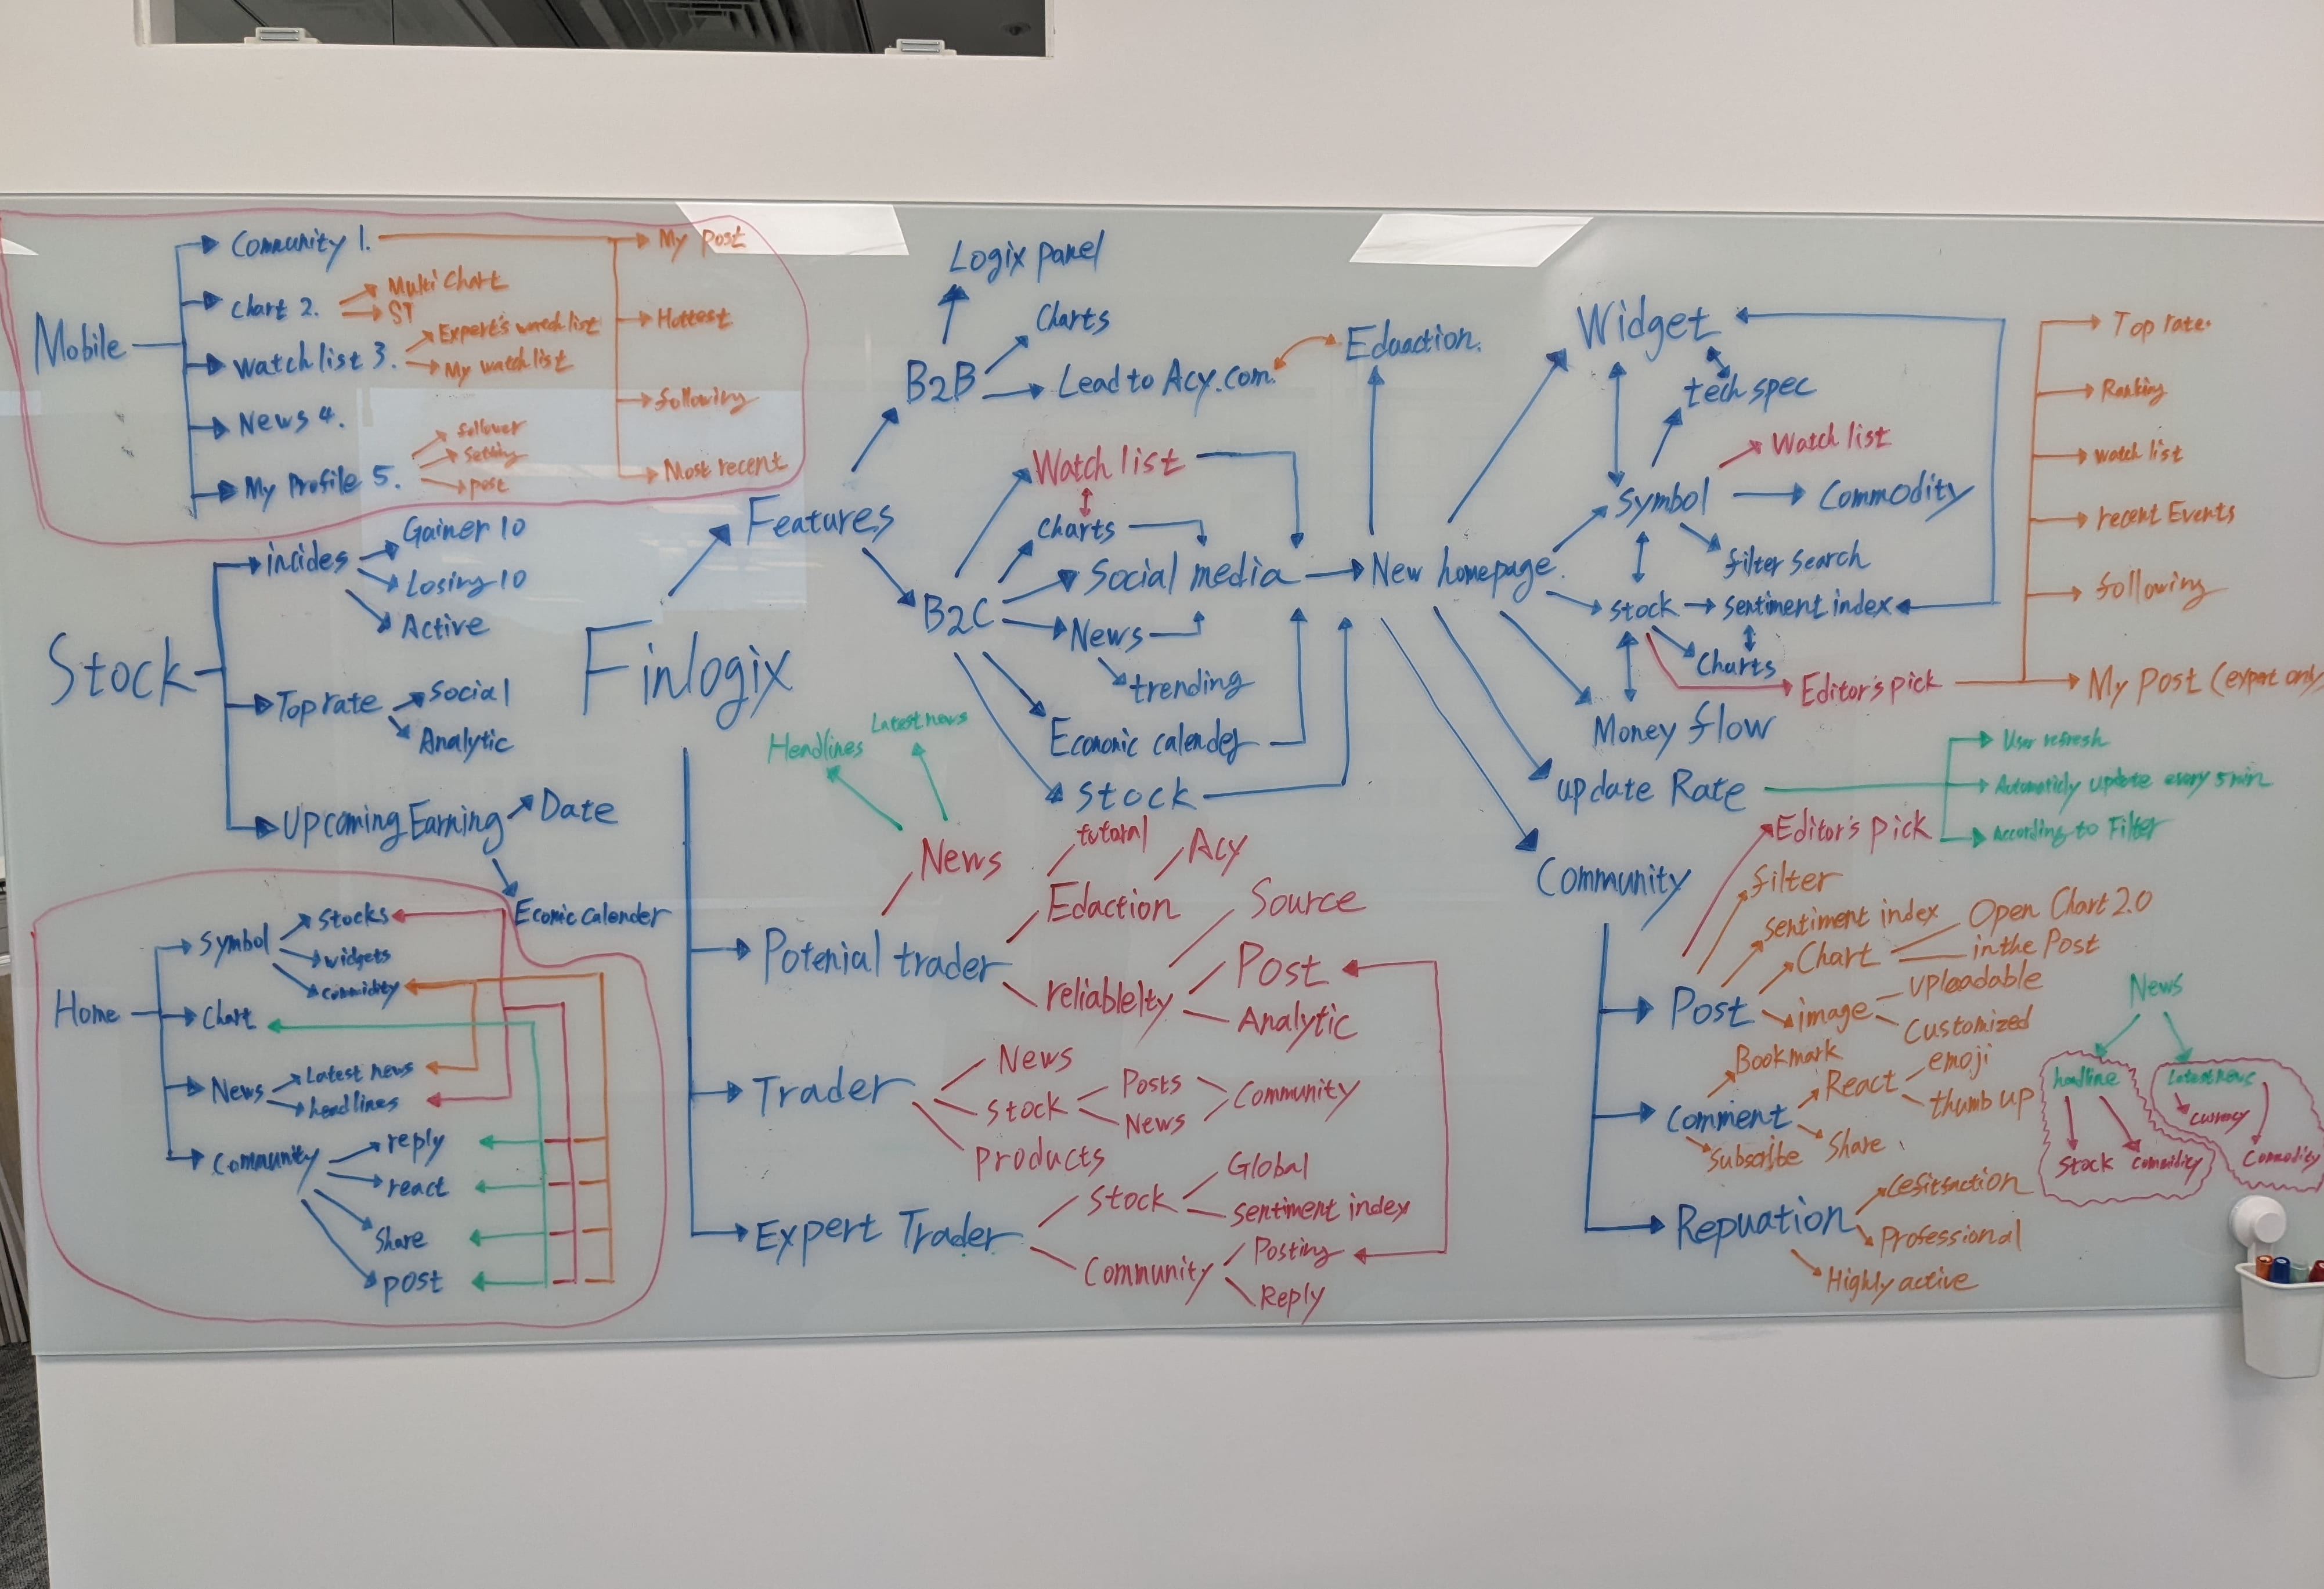 Mobile
Community 1.
My post
Chart 2.
Multi Chart
ST
Hottest
Watch list 3.
Expert's watch list
My watch list
following
News 4.
My Profile 5.
follower
Setting
post
Most recent
Stock
incides
Gainer 10
Losing 10
Active
Top rate
Social
Analytic
Upcoming Earning
Date
Econic Calender
Home
Symbol
Stocks
widgets
Commidity
Chart
News
Latest news
headlines
Community
reply
react
Share
post
Finlogix
Features
B2B
Logix panel
Charts
Lead to Acy.com.
Eduaction.
B2C
Watch list
Charts
Social media
News
trending
Economic calender
Stock
New homepage.
Widget
tech spec
Symbol
Watch list
Commodity
filter search
Stock
Sentiment index
Charts
Editor's pick
Top rate.
Ranking
watch list
recent Events
following
My Post (expert only
Money flow
update Rate
User refresh
Automaticly update every 5 min
According to Filter
Community
Post
Editor's pick
filter
Sentiment index
Chart
Open Chart 2.0
in the Post
image
Uploadable
Customized
Comment
Bookmark
React
emoji
thumb up
Share
Subscribe
Repuation
Professional
Highly active
News
headline
Stock
Commidity
Latest news
Currency
Commodity
Potenial trader
News
Headlines
Latest news
Edaction
tutoral
Acy
reliablelty
Source
Post
Analytic
Trader
News
Stock
Posts
News
Community
Products
Expert Trader
Stock
Global
Sentiment index
Community
Posting
Reply